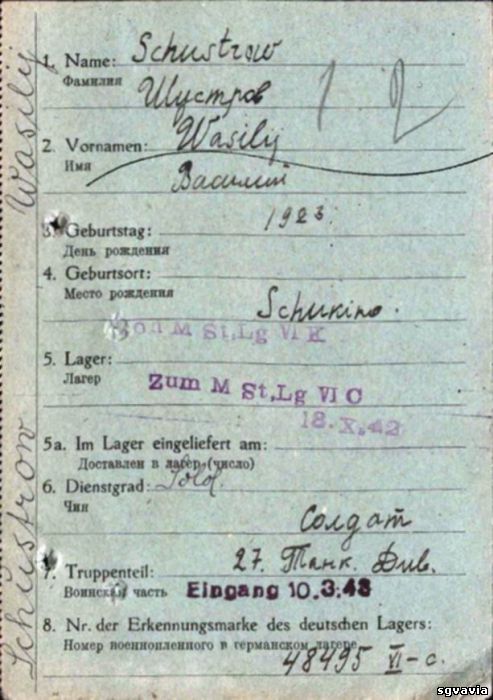 1. Name: Schustrow
Фамилия Шустров
1 2
2. Vornamen: Wasilij
Имя Василий
3. Geburtstag: 1923.
День рождения
4. Geburtsort:
Место рождения
Schukino.
Von M St,Lg VI K
5. Lager:
Лагер
Zum M St,Lg VI C
18.X.42
5a. Im Lager eingeliefert am:
Доставлен в лагер (число)
6. Dienstgrad: Sold.
Чин
Солдат
7. Truppenteil: 27. Танк. Див.
Воинская часть Eingang 10.3.43
8. Nr. der Erkennungsmarke des deutschen Lagers:
Номер военнопленного в германском лагере
48495 VI-c.
Schustrow Wasily
sgvavia